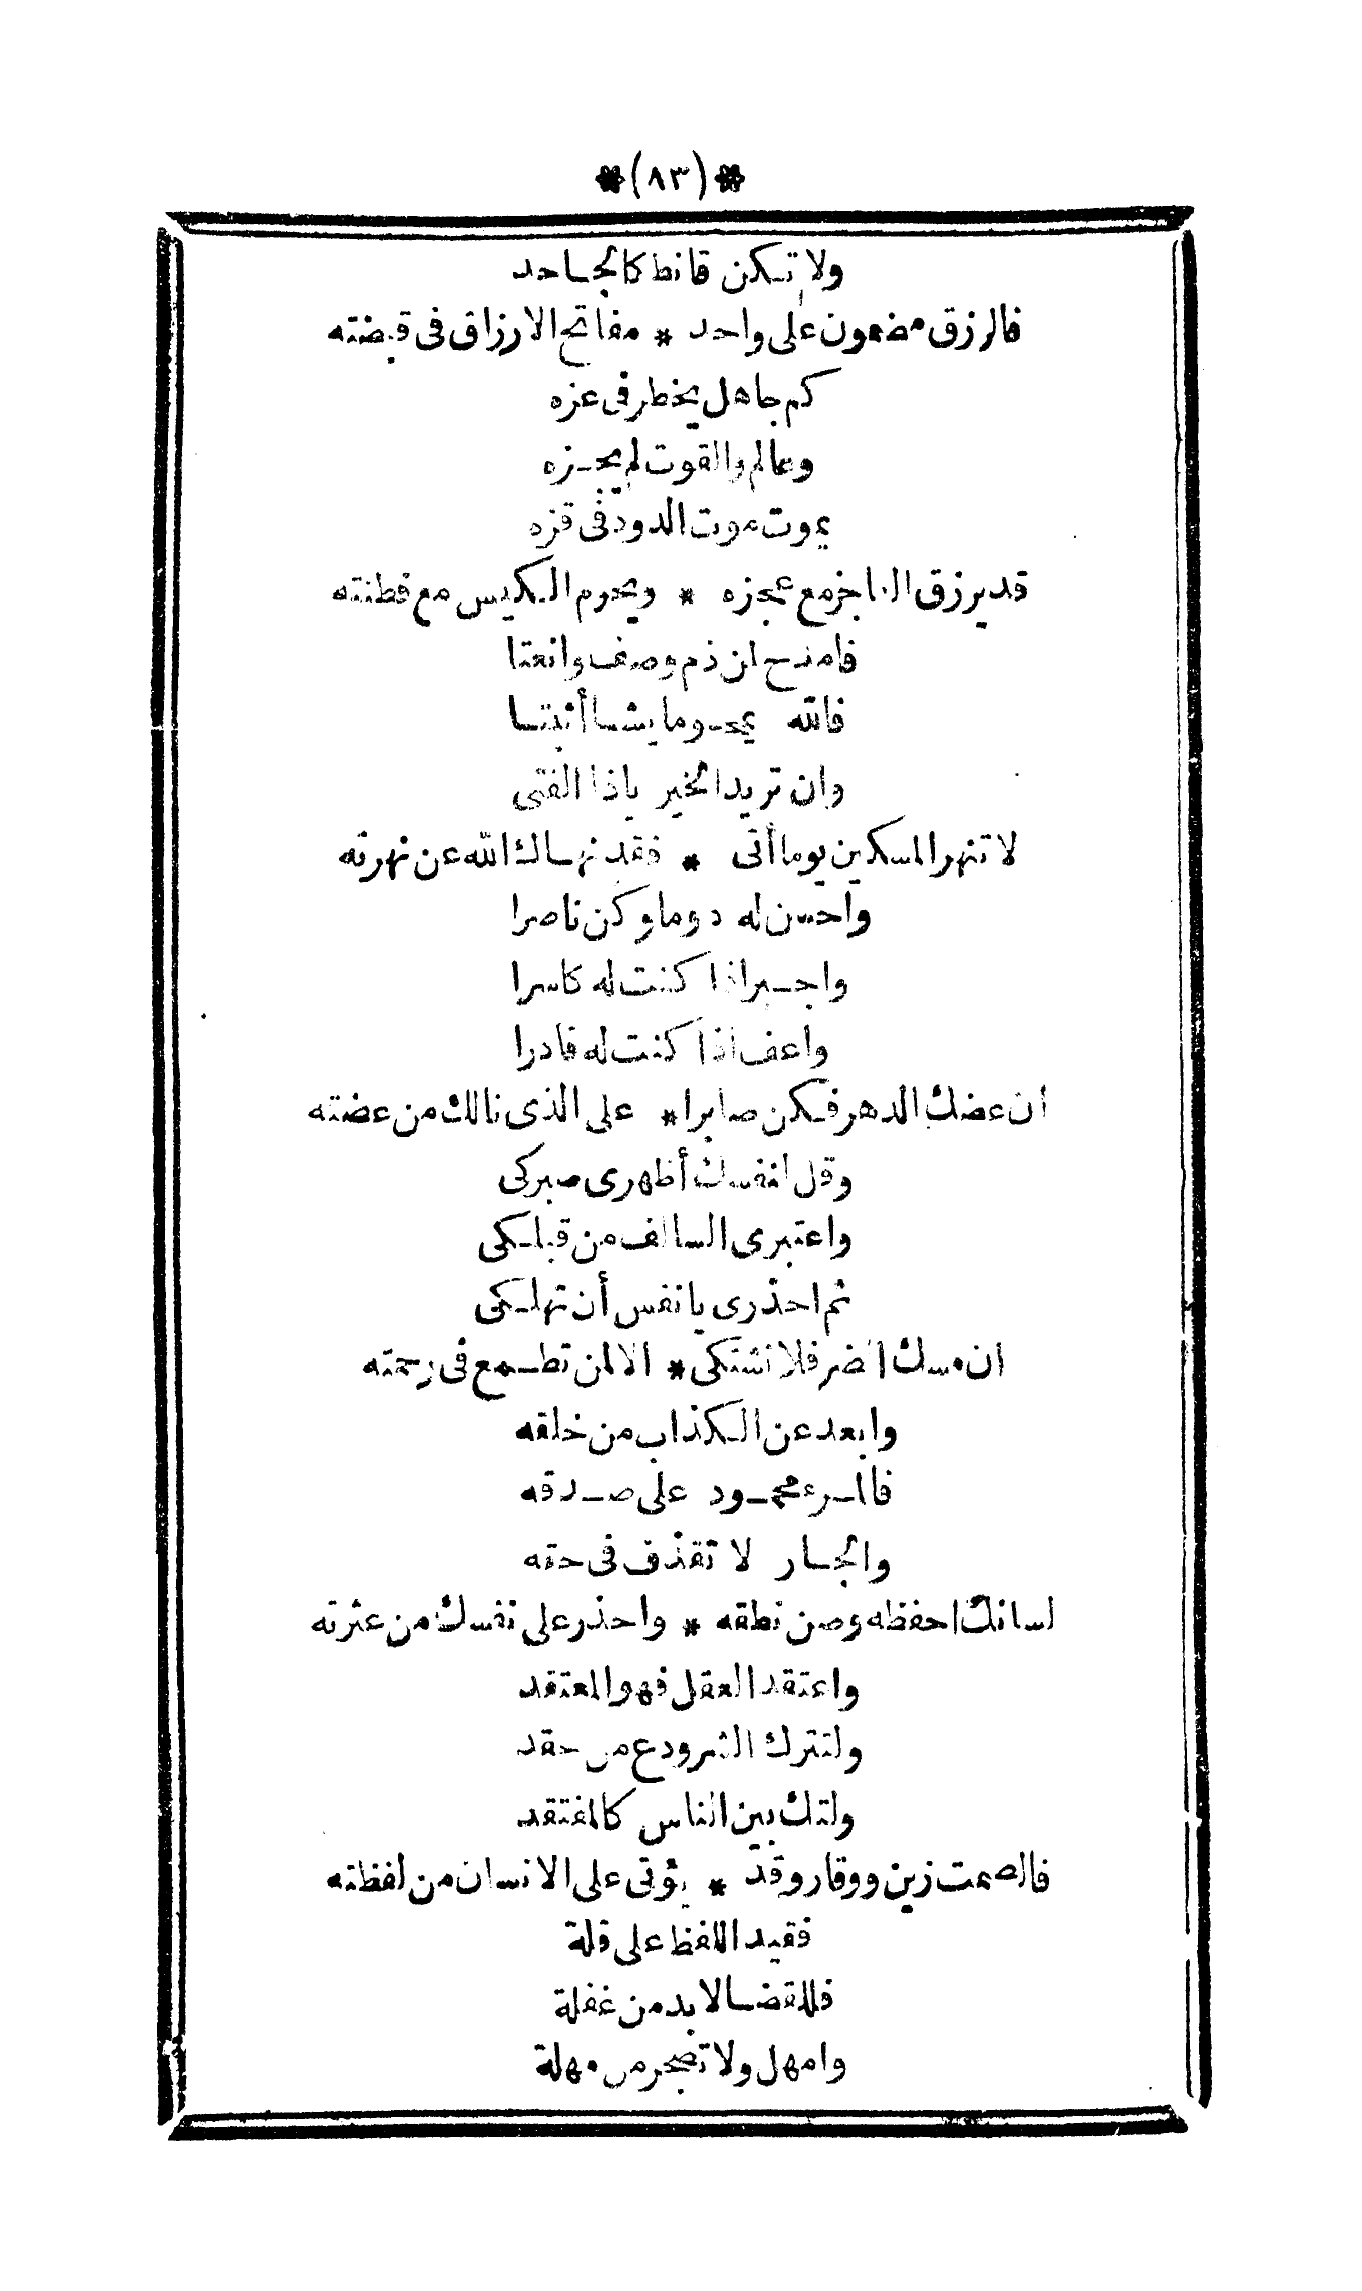 *(٨٣)*
ولا تكن قانط كالجاحد
فالرزق مضمون على واحد * مفاتح الارزاق فى قبضته
كم جاهل يخطر فى عزه
وعالم والقوت لم يحزه
يموت موت الدود فى قزه
قد يرزق العاجز مع عجزه * ويحرم الكيس مع فطنته
فامدح ان ذم وصف وانعتا
فالله يمحو ما يشا أثبتا
وان تريد الخير ياذا الفتى
لا تنهر المسكين يوما أتى * فقد نهاك الله عن نهرته
واحسن له دوما وكن ناصرا
واجبر اذا كنت له كاسرا
واعف اذا كنت له قادرا
ان عضك الدهر فكن صابرا * على الذى نالك من عضته
وقل لنفسك أظهرى صبركى
واعتبرى السالف من قبلكى
ثم احذرى يا نفس أن تهلكى
ان مسك الضر فلا تشتكى * الا لمن تطمع فى رحمته
وابعد عن الكذاب من خلقه
فالمرء محمود على صدقه
والجار لا تقذف فى حته
لسانك احفظه وصن نطقه * واحذر على نفسك من عثرته
واعتقد العقل فهو المعتقد
ولتترك الشرودع من حقد
ولتك بين الناس كالمفتقد
فالصمت زين ووقار وقد * يؤتى على الانسان من لفظته
فقيد اللفظ على قلة
فللقضا لا بد من غفلة
وامهل ولا تضجر من مهلة